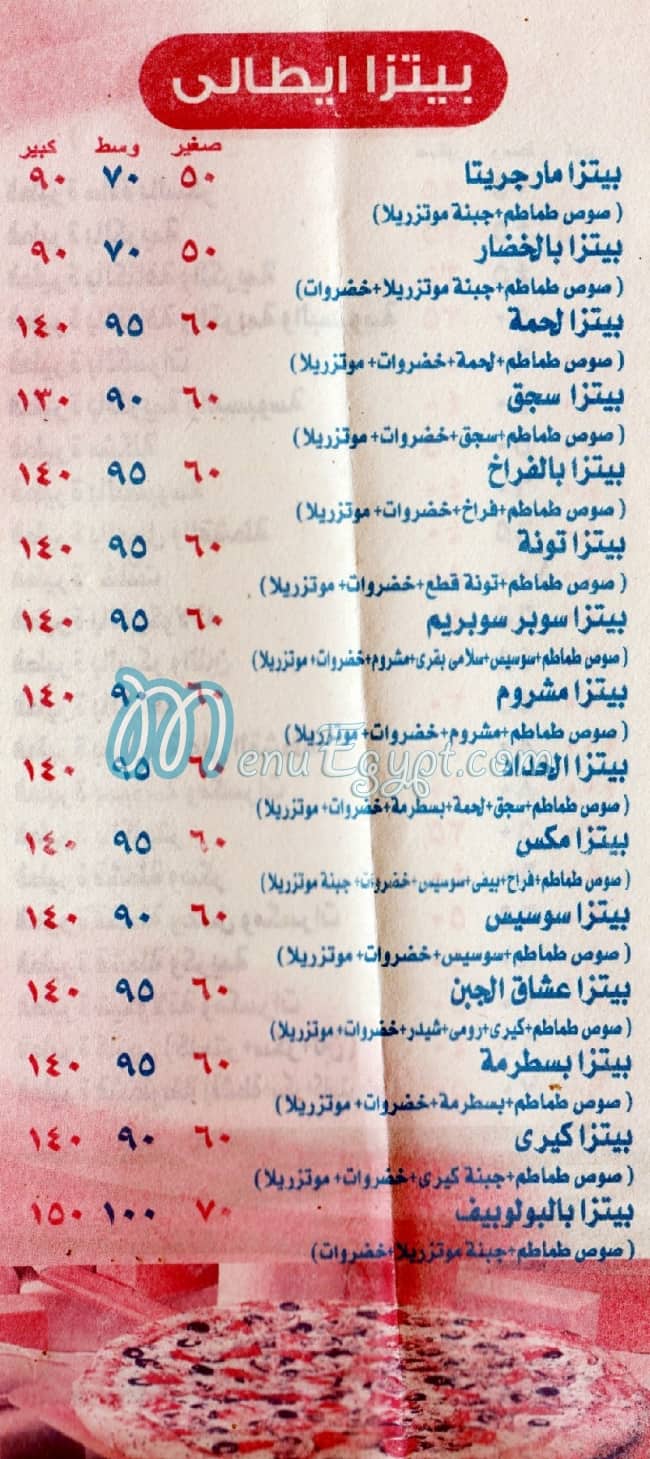 بيتزا ايطالى
صغير وسط كبير
بيتزا مارجريتا ٥٠ ٧٠ ٩٠
( صوص طماطم+جبنة موتزريلا)
بيتزا بالخضار ٥٠ ٧٠ ٩٠
( صوص طماطم+ جبنة موتزريلا+خضروات)
بيتزا لحمة ٦٠ ٩٥ ١٤٠
( صوص طماطم+ لحمة+خضروات+ موتزريلا)
بيتزا سجق ٦٠ ٩٠ ١٣٠
( صوص طماطم+سجق+خضروات+ موتزريلا)
بيتزا بالفراخ ٦٠ ٩٥ ١٤٠
( صوص طماطم+فراخ+خضروات+ موتزريلا)
بيتزا تونة ٦٠ ٩٥ ١٤٠
( صوص طماطم+تونة قطع+خضروات+ موتزريلا)
بيتزا سوبر سوبريم ٦٠ ٩٥ ١٤٠
( صوص طماطم+سوسيس+سلامى بقرى+مشروم+خضروات+ موتزريلا)
بيتزا مشروم ٦٠ ٩٠ ١٤٠
( صوص طماطم+مشروم+خضروات+ موتزريلا)
MenuEgypt.com
بيتزا الحداد ٦٠ ٩٥ ١٤٠
( صوص طماطم+سجق+لحمة+بسطرمة+خضروات+ موتزريلا)
بيتزا مكس ٦٠ ٩٥ ١٤٠
( صوص طماطم+فراخ+بيفى+سوسيس+خضروات+ جبنة موتزريلا)
بيتزا سوسيس ٦٠ ٩٠ ١٤٠
( صوص طماطم+سوسيس+خضروات+ موتزريلا)
بيتزا عشاق الجبن ٦٠ ٩٥ ١٤٠
( صوص طماطم+كيرى+رومى+شيدر+خضروات+ موتزريلا)
بيتزا بسطرمة ٦٠ ٩٥ ١٤٠
( صوص طماطم+بسطرمة+خضروات+ موتزريلا)
بيتزا كيرى ٦٠ ٩٠ ١٤٠
( صوص طماطم+جبنة كيرى+خضروات+ موتزريلا)
بيتزا بالبولوبيف ٧٠ ١٠٠ ١٥٠
( صوص طماطم+جبنة موتزريلا+خضروات)